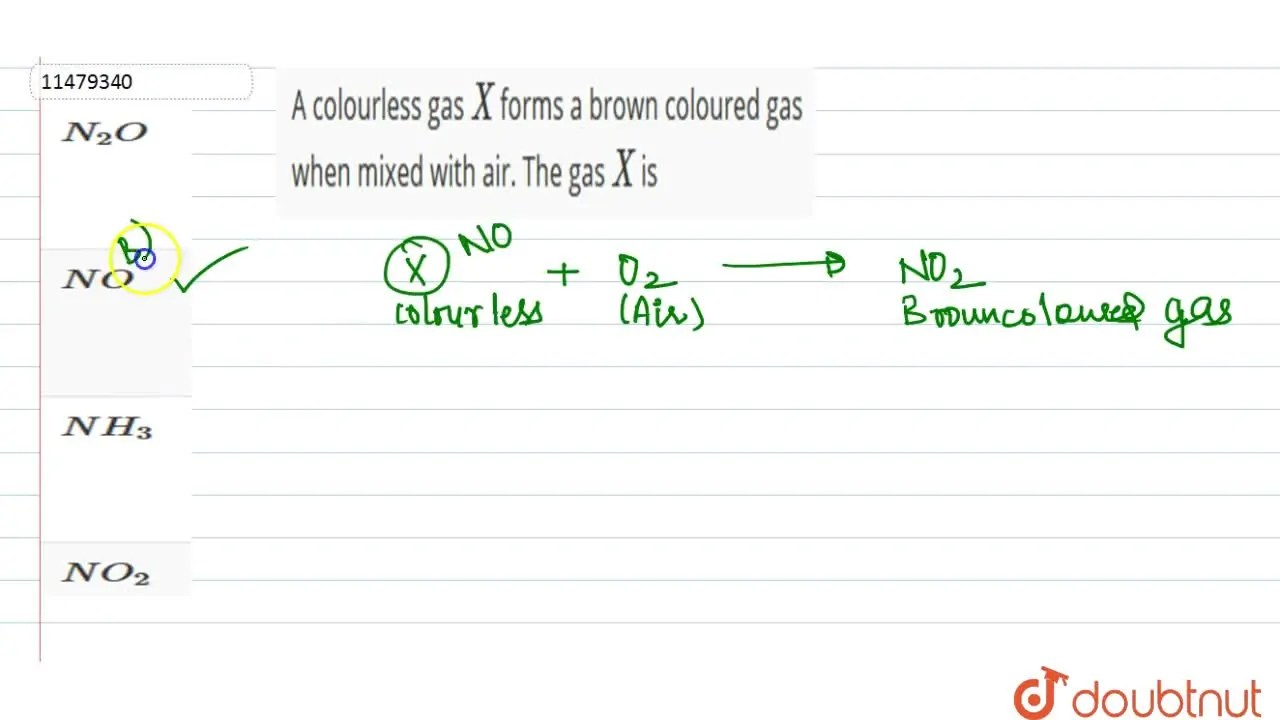 11479340
A colourless gas X forms a brown coloured gas
when mixed with air. The gas X is
N₂O
B)
NO
X NO + O₂ → NO₂
colourless (Air) Browncoloured gas
NH₃
NO₂
doubtnut